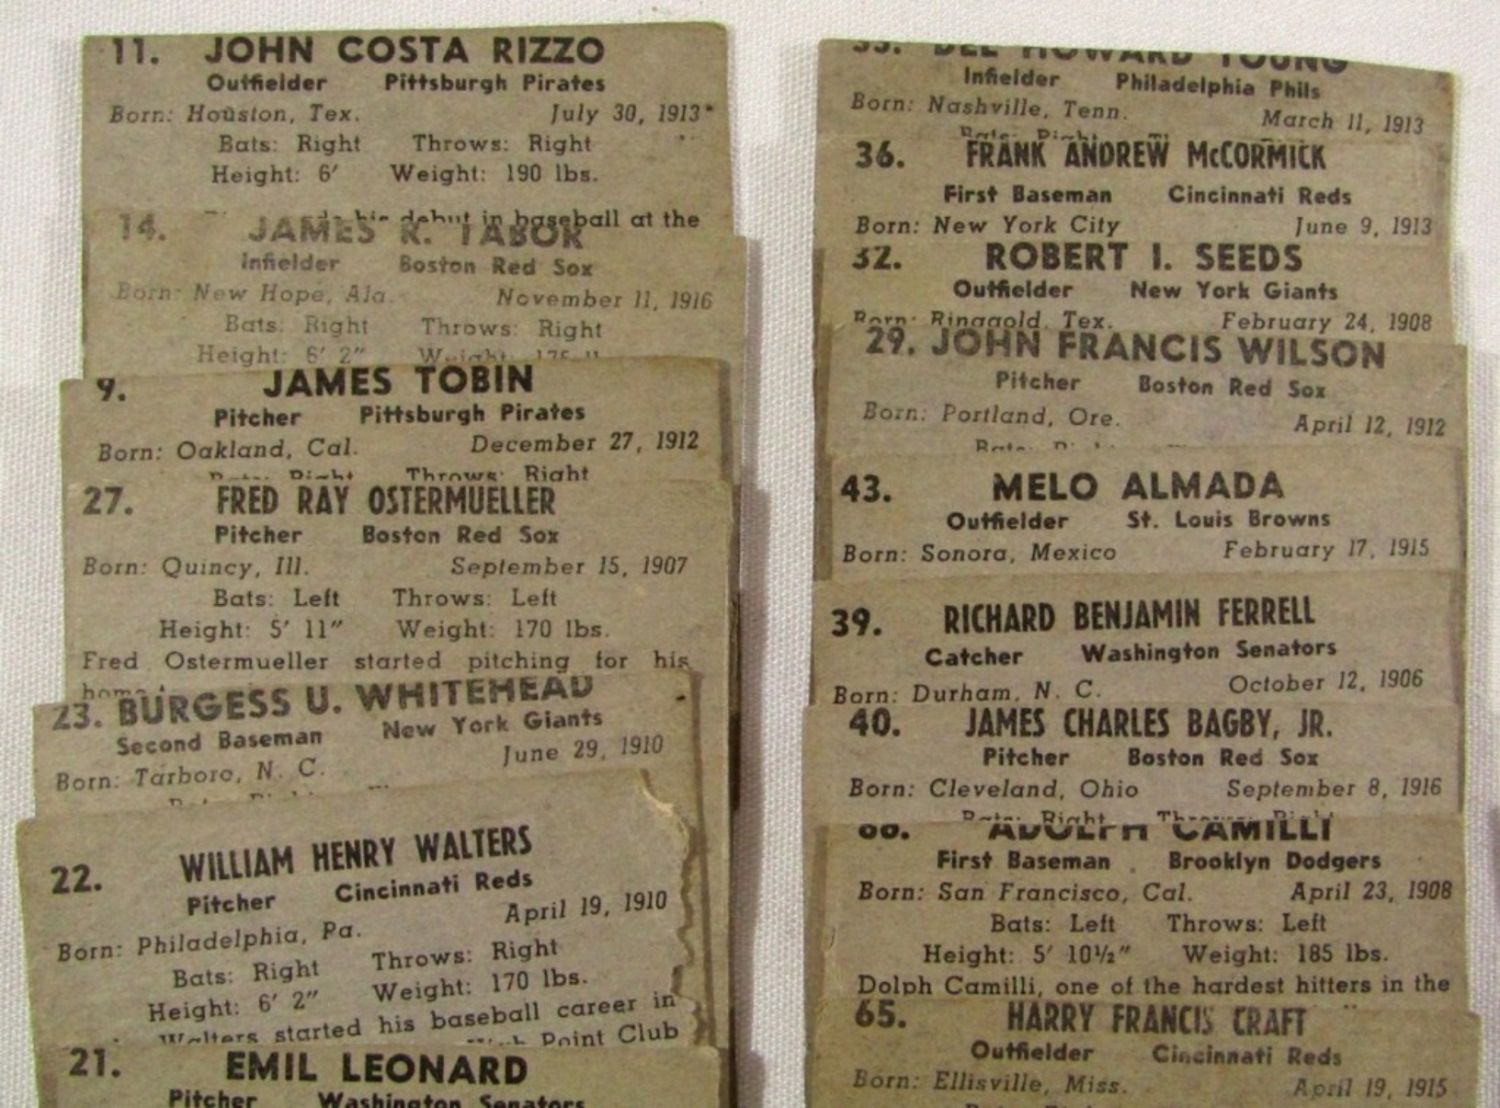 11. JOHN COSTA RIZZO
Outfielder Pittsburgh Pirates
Born: Houston, Tex. July 30, 1913
Bats: Right Throws: Right
Height: 6' Weight: 190 lbs.
his debut in baseball at the
14. JAMES R. TABOR
Infielder Boston Red Sox
Born: New Hope, Ala. November 11, 1916
Bats: Right Throws: Right
Height: 6' 2" Weight: 175
9. JAMES TOBIN
Pitcher Pittsburgh Pirates
Born: Oakland, Cal. December 27, 1912
Bats: Right Throws: Right
27. FRED RAY OSTERMUELLER
Pitcher Boston Red Sox
Born: Quincy, Ill. September 15, 1907
Bats: Left Throws: Left
Height: 5' 11" Weight: 170 lbs.
Fred Ostermueller started pitching for his
23. BURGESS U. WHITEHEAD
Second Baseman New York Giants
Born: Tarboro, N. C. June 29, 1910
22. WILLIAM HENRY WALTERS
Pitcher Cincinnati Reds
Born: Philadelphia, Pa. April 19, 1910
Bats: Right Throws: Right
Height: 6' 2" Weight: 170 lbs.
Walters started his baseball career in
Point Club
21. EMIL LEONARD
Pitcher Washington Senators
DEL HOWARD YOUNG
Infielder Philadelphia Phils
Born: Nashville, Tenn. March 11, 1913
Bats: Right
36. FRANK ANDREW McCORMICK
First Baseman Cincinnati Reds
Born: New York City June 9, 1913
32. ROBERT I. SEEDS
Outfielder New York Giants
Born: Ringgold, Tex. February 24, 1908
29. JOHN FRANCIS WILSON
Pitcher Boston Red Sox
Born: Portland, Ore. April 12, 1912
43. MELO ALMADA
Outfielder St. Louis Browns
Born: Sonora, Mexico February 17, 1915
39. RICHARD BENJAMIN FERRELL
Catcher Washington Senators
Born: Durham, N. C. October 12, 1906
40. JAMES CHARLES BAGBY, JR.
Pitcher Boston Red Sox
Born: Cleveland, Ohio September 8, 1916
Bats: Right Throws: Right
ADOLPH CAMILLI
First Baseman Brooklyn Dodgers
Born: San Francisco, Cal. April 23, 1908
Bats: Left Throws: Left
Height: 5' 10½" Weight: 185 lbs.
Dolph Camilli, one of the hardest hitters in the
65. HARRY FRANCIS CRAFT
Outfielder Cincinnati Reds
Born: Ellisville, Miss. April 19, 1915